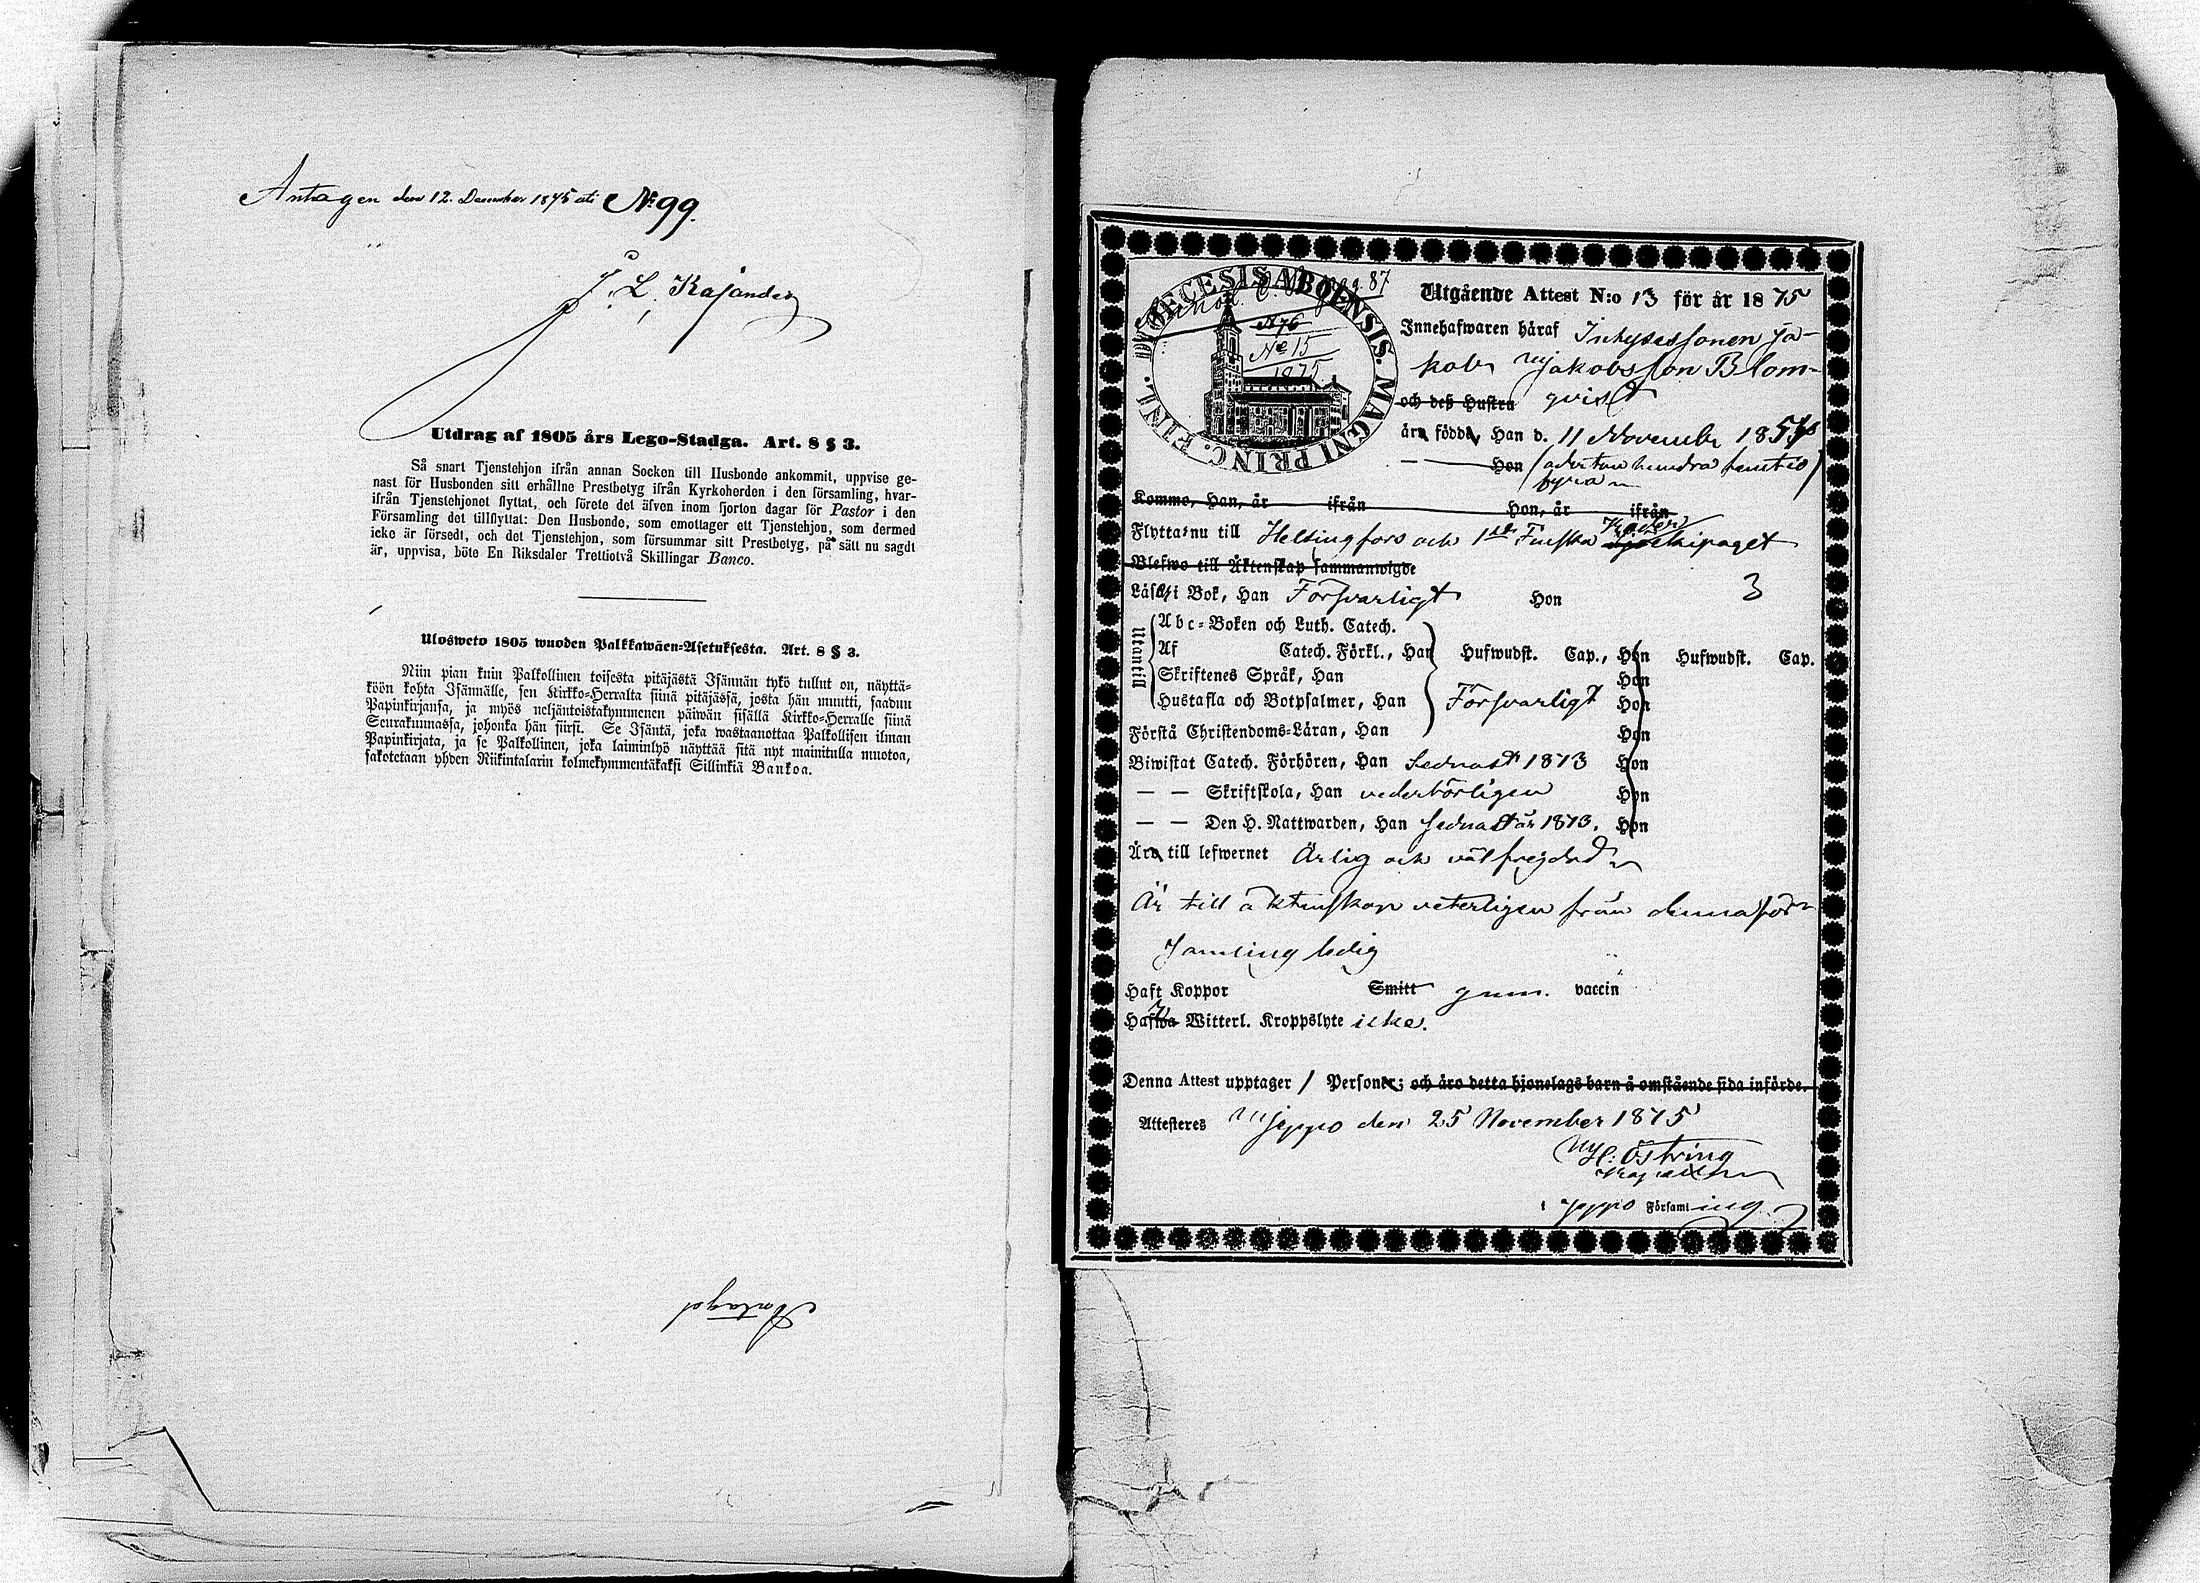 Antagen den 12. December 1875 ati No 99.
J. L. Kajander
Utdrag af 1805 års Lego-Stadga. Art. 8 § 3.
Så snart Tjenstehjon ifrån annan Socken till Husbonde ankommit, uppvise ge-
nast för Husbonden sitt erhållne Prestbetyg ifrån Kyrkoherden i den församling, hvar-
ifrån Tjenstehjonet flyttat, och förete det äfven inom fjorton dagar för Pastor i den
Församling det tillflyttat: Den Husbonde, som emottager ett Tjenstehjon, som dermed
icke är försedt, och det Tjenstehjon, som försummar sitt Prestbetyg, på sätt nu sagdt
är, uppvisa, böte En Riksdaler Trettiotvå Skillingar Banco.
Ulosweto 1805 wuoden Palkkawäen-Asetuksesta. Art. 8 § 3.
Niin pian kuin Palkollinen toisesta pitäjästä Isännän tykö tullut on, näyttä-
köön kohta Isännälle, sen Kirkko-Herralta siinä pitäjässä, josta hän muutti, saadun
Papinkirjansa, ja myös neljäntoistakymmenen päiwän sisällä Kirkko-Herralle siinä
Seurakunnassa, johonka hän siirsi. Se Isäntä, joka wastaanottaa Palkollisen ilman
Papinkirjata, ja se Palkollinen, joka laiminlyö näyttää sitä nyt mainitulla muotoa,
sakotetaan yhden Riikintalarin kolmekymmentäkaksi Sillinkiä Bankoa.
Antaget
DIOECESIS ABOENSIS. MAGNI PRINC. FINL.
pag. 87
No 15
1875
Utgående Attest N:o 13 för år 1875
Innehafwaren häraf Inhysessonen Ja-
kob Jakobsson Blom-
och deß Hustru qvist
äro födde, Han d. 11 November 1854
Hon (adertonhundra femtio
fyra)
Komme, Han, år ifrån Hon, år ifrån
Flytta nu till Helsingfors och 1sta Finska Kader
Sjöekipaget
Blefwo till Äktenskap sammanwigde
Läser i Bok, Han Försvarligt Hon 3
Utantill
Abc-Boken och Luth. Catech.
Af Catech. Förkl., Han Hufwudst. Cap., Hon Hufwudst. Cap.
Skriftenes Språk, Han Hon
Hustafla och Botpsalmer, Han Försvarligt Hon
Förstå Christendoms-Läran, Han Hon
Biwistat Catech. Förhören, Han sednast 1873 Hon
— — Skriftskola, Han vederbörligen Hon
— — Den H. Nattwarden, Han sednast år 1873. Hon
Äro till lefwernet Ärlig och välfrejdad
Är till äktenskap veterligen från denna för-
samling ledig
Haft Koppor Smitt gm. vaccin
Hafwa Witterl. Kroppslyte icke.
Denna Attest upptager 1 Person; och äro detta hjonelags barn å omstående sida införde.
Attesteres Jeppo den 25 November 1875
Östring
Kapellan
i Jeppo Församling